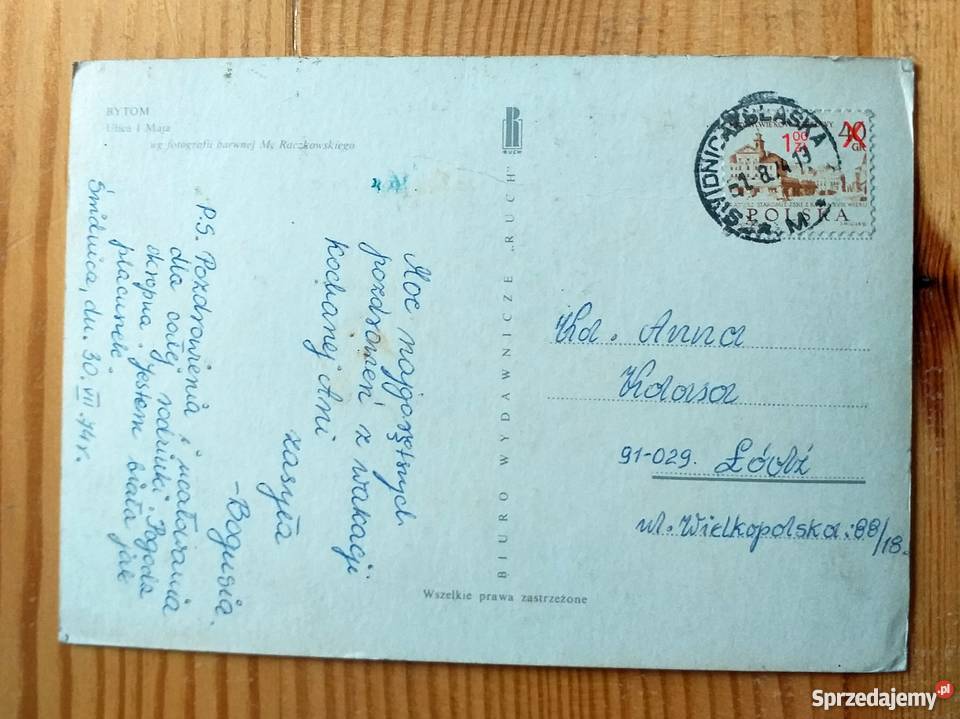 BYTOM
Ulica 1 Maja
wg fotografii barwnej Mę Raczkowskiego
RUCH
1,00
ZŁ
40
GR
POLSKA
ŚWIDNICA ŚLĄSKA
8.74 13
Moc najgorętszych
pozdrowień z wakacji
kochanej Ani
zasyła
-Bogusia.
P.S. Pozdrowienia i ucałowania
dla całej rodzinki. Pogoda
okropna. Jestem biała jak
dn. 30.VII.74r.
BIURO WYDAWNICZE „RUCH”
Kol. Anna
Kolasa
91-029. Łódź
ul. Wielkopolska: 88/18.
Wszelkie prawa zastrzeżone
Sprzedajemy.pl